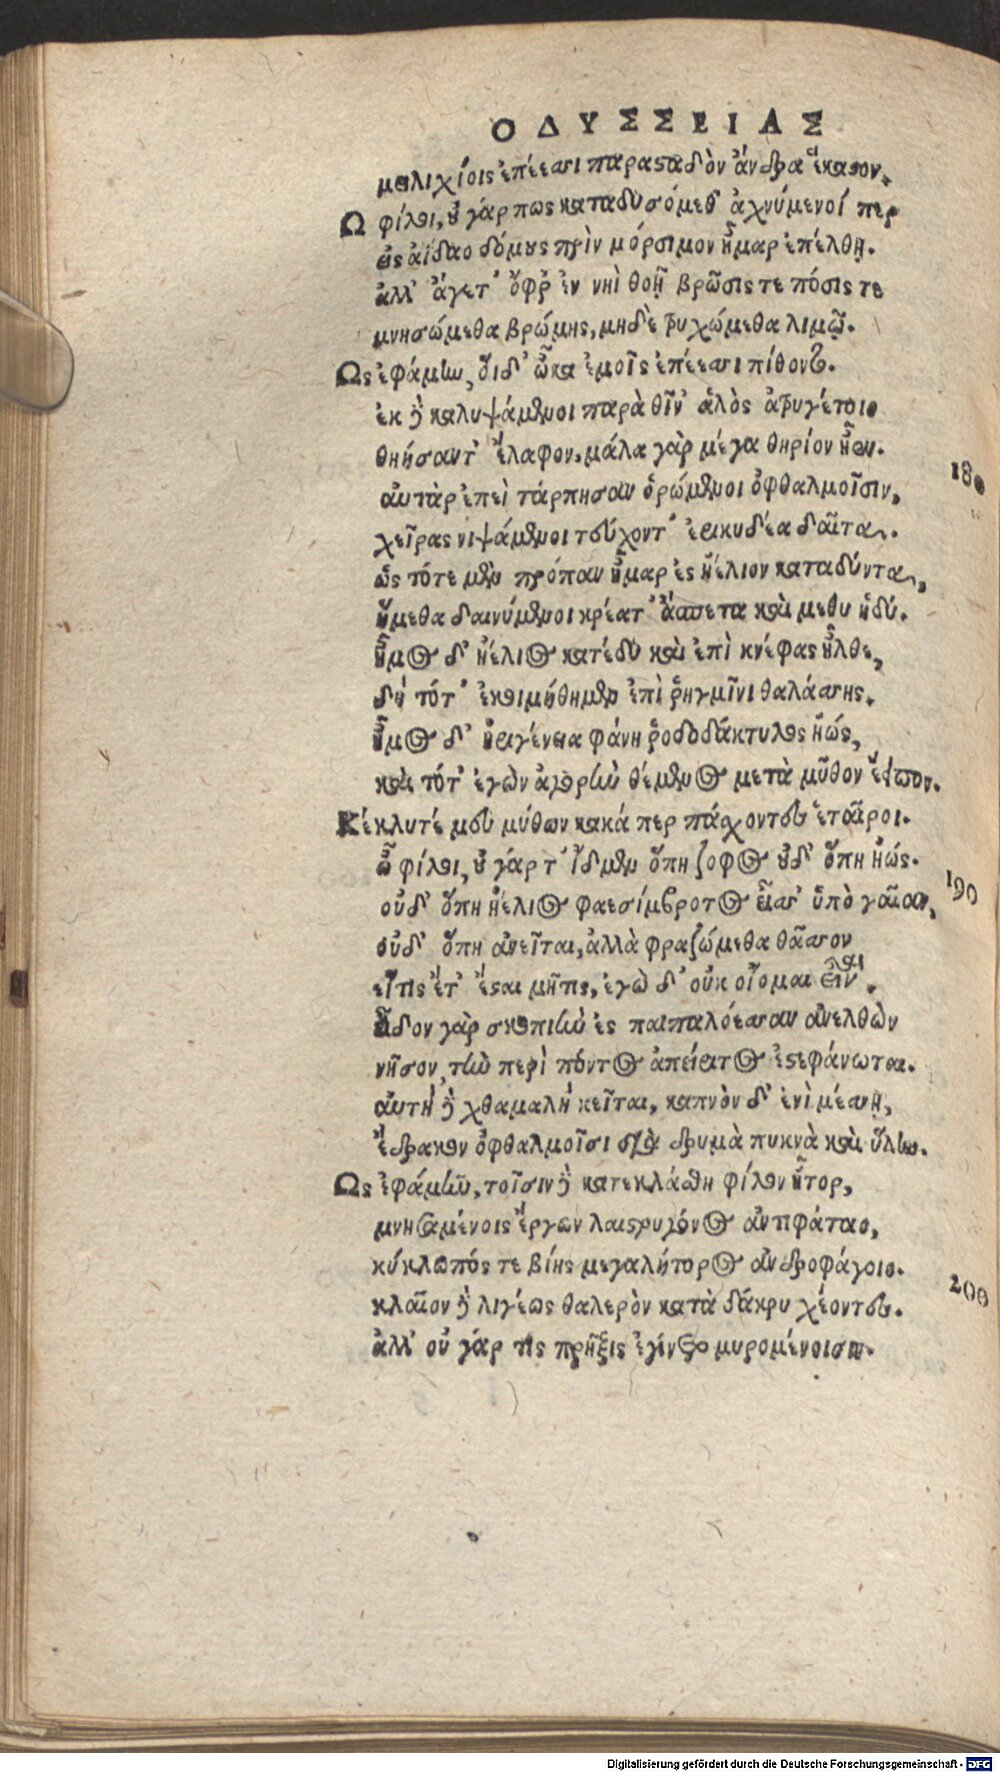 ΟΔΥΣΣΕΙΑΣ
μειλιχίοις ἐπέεσσι παρασταδὸν ἄνδρα ἕκαστον.
Ω φίλοι, οὐ γάρ πως καταδυσόμεθ' ἀχνύμενοί περ
εἰς ἀίδαο δόμους πρὶν μόρσιμον ἦμαρ ἐπέλθῃ.
ἀλλ' ἄγετ' ὄφρ' ἐν νηὶ θοῇ βρῶσίς τε πόσις τε
μνησώμεθα βρώμης, μηδὲ τρυχώμεθα λιμῷ.
Ως ἐφάμην, οἱ δ' ὦκα ἐμοῖς ἐπέεσσι πίθοντο.
ἐκ δὲ καλυψάμενοι παρὰ θῖν' ἁλὸς ἀτρυγέτοιο
θηήσαντ' ἔλαφον, μάλα γὰρ μέγα θηρίον ἦεν.
αὐτὰρ ἐπεὶ τάρπησαν ὁρώμενοι ὀφθαλμοῖσιν, 180
χεῖρας νιψάμενοι τεύχοντ' ἐρικυδέα δαῖτα.
ὣς τότε μὲν πρόπαν ἦμαρ ἐς ἠέλιον καταδύντα,
ἥμεθα δαινύμενοι κρέατ' ἄασπετα καὶ μεθυ ἡδύ.
ἦμος δ' ἠέλιος κατέδυ καὶ ἐπὶ κνέφας ἦλθε,
δὴ τότ' ἐκοιμήθημεν ἐπὶ ῥηγμῖνι θαλάσσης.
ἦμος δ' ἠριγένεια φάνη ῥοδοδάκτυλος ἠώς,
καὶ τότ' ἐγὼν ἀγορὴν θέμενος μετὰ μῦθον ἔειπον.
Κέκλυτέ μευ μύθων κακά περ πάσχοντες ἑταῖροι.
ὦ φίλοι, οὐ γάρ τ' ἴδμεν ὅπη ζοφος οὐδ' ὅπη ἠώς.
οὐδ' ὅπη ἠέλιος φαεσίμβροτος εἶσ' ὑπὸ γαῖαν, 190
οὐδ' ὅπη ἀνεῖται, ἀλλὰ φραζώμεθα θᾶσσον
εἴ τις ἔτ' ἔσται μῆτις, ἐγὼ δ' οὐκ οἴομαι εἶναι.
εἶδον γὰρ σκοπιὴν ἐς παιπαλόεσσαν ἀνελθὼν
νῆσον, τὴν περὶ πόντος ἀπείριτος ἐστεφάνωται.
αὐτὴ δὲ χθαμαλὴ κεῖται, καπνὸν δ' ἐνὶ μέσσῃ,
ἔδρακον ὀφθαλμοῖσι διὰ δρυμὰ πυκνὰ καὶ ὕλην.
Ως ἐφάμην, τοῖσιν δὲ κατεκλάσθη φίλον ἦτορ,
μνησαμένοις ἔργων λαιστρυγόνος ἀντιφάταο,
κύκλωπός τε βίης μεγαλήτορος ἀνδροφάγοιο.
κλαῖον δὲ λιγέως θαλερὸν κατὰ δάκρυ χέοντες. 200
ἀλλ' οὐ γάρ τις πρῆξις ἐγίνετο μυρομένοισιν.
Digitalisierung gefördert durch die Deutsche Forschungsgemeinschaft - DFG